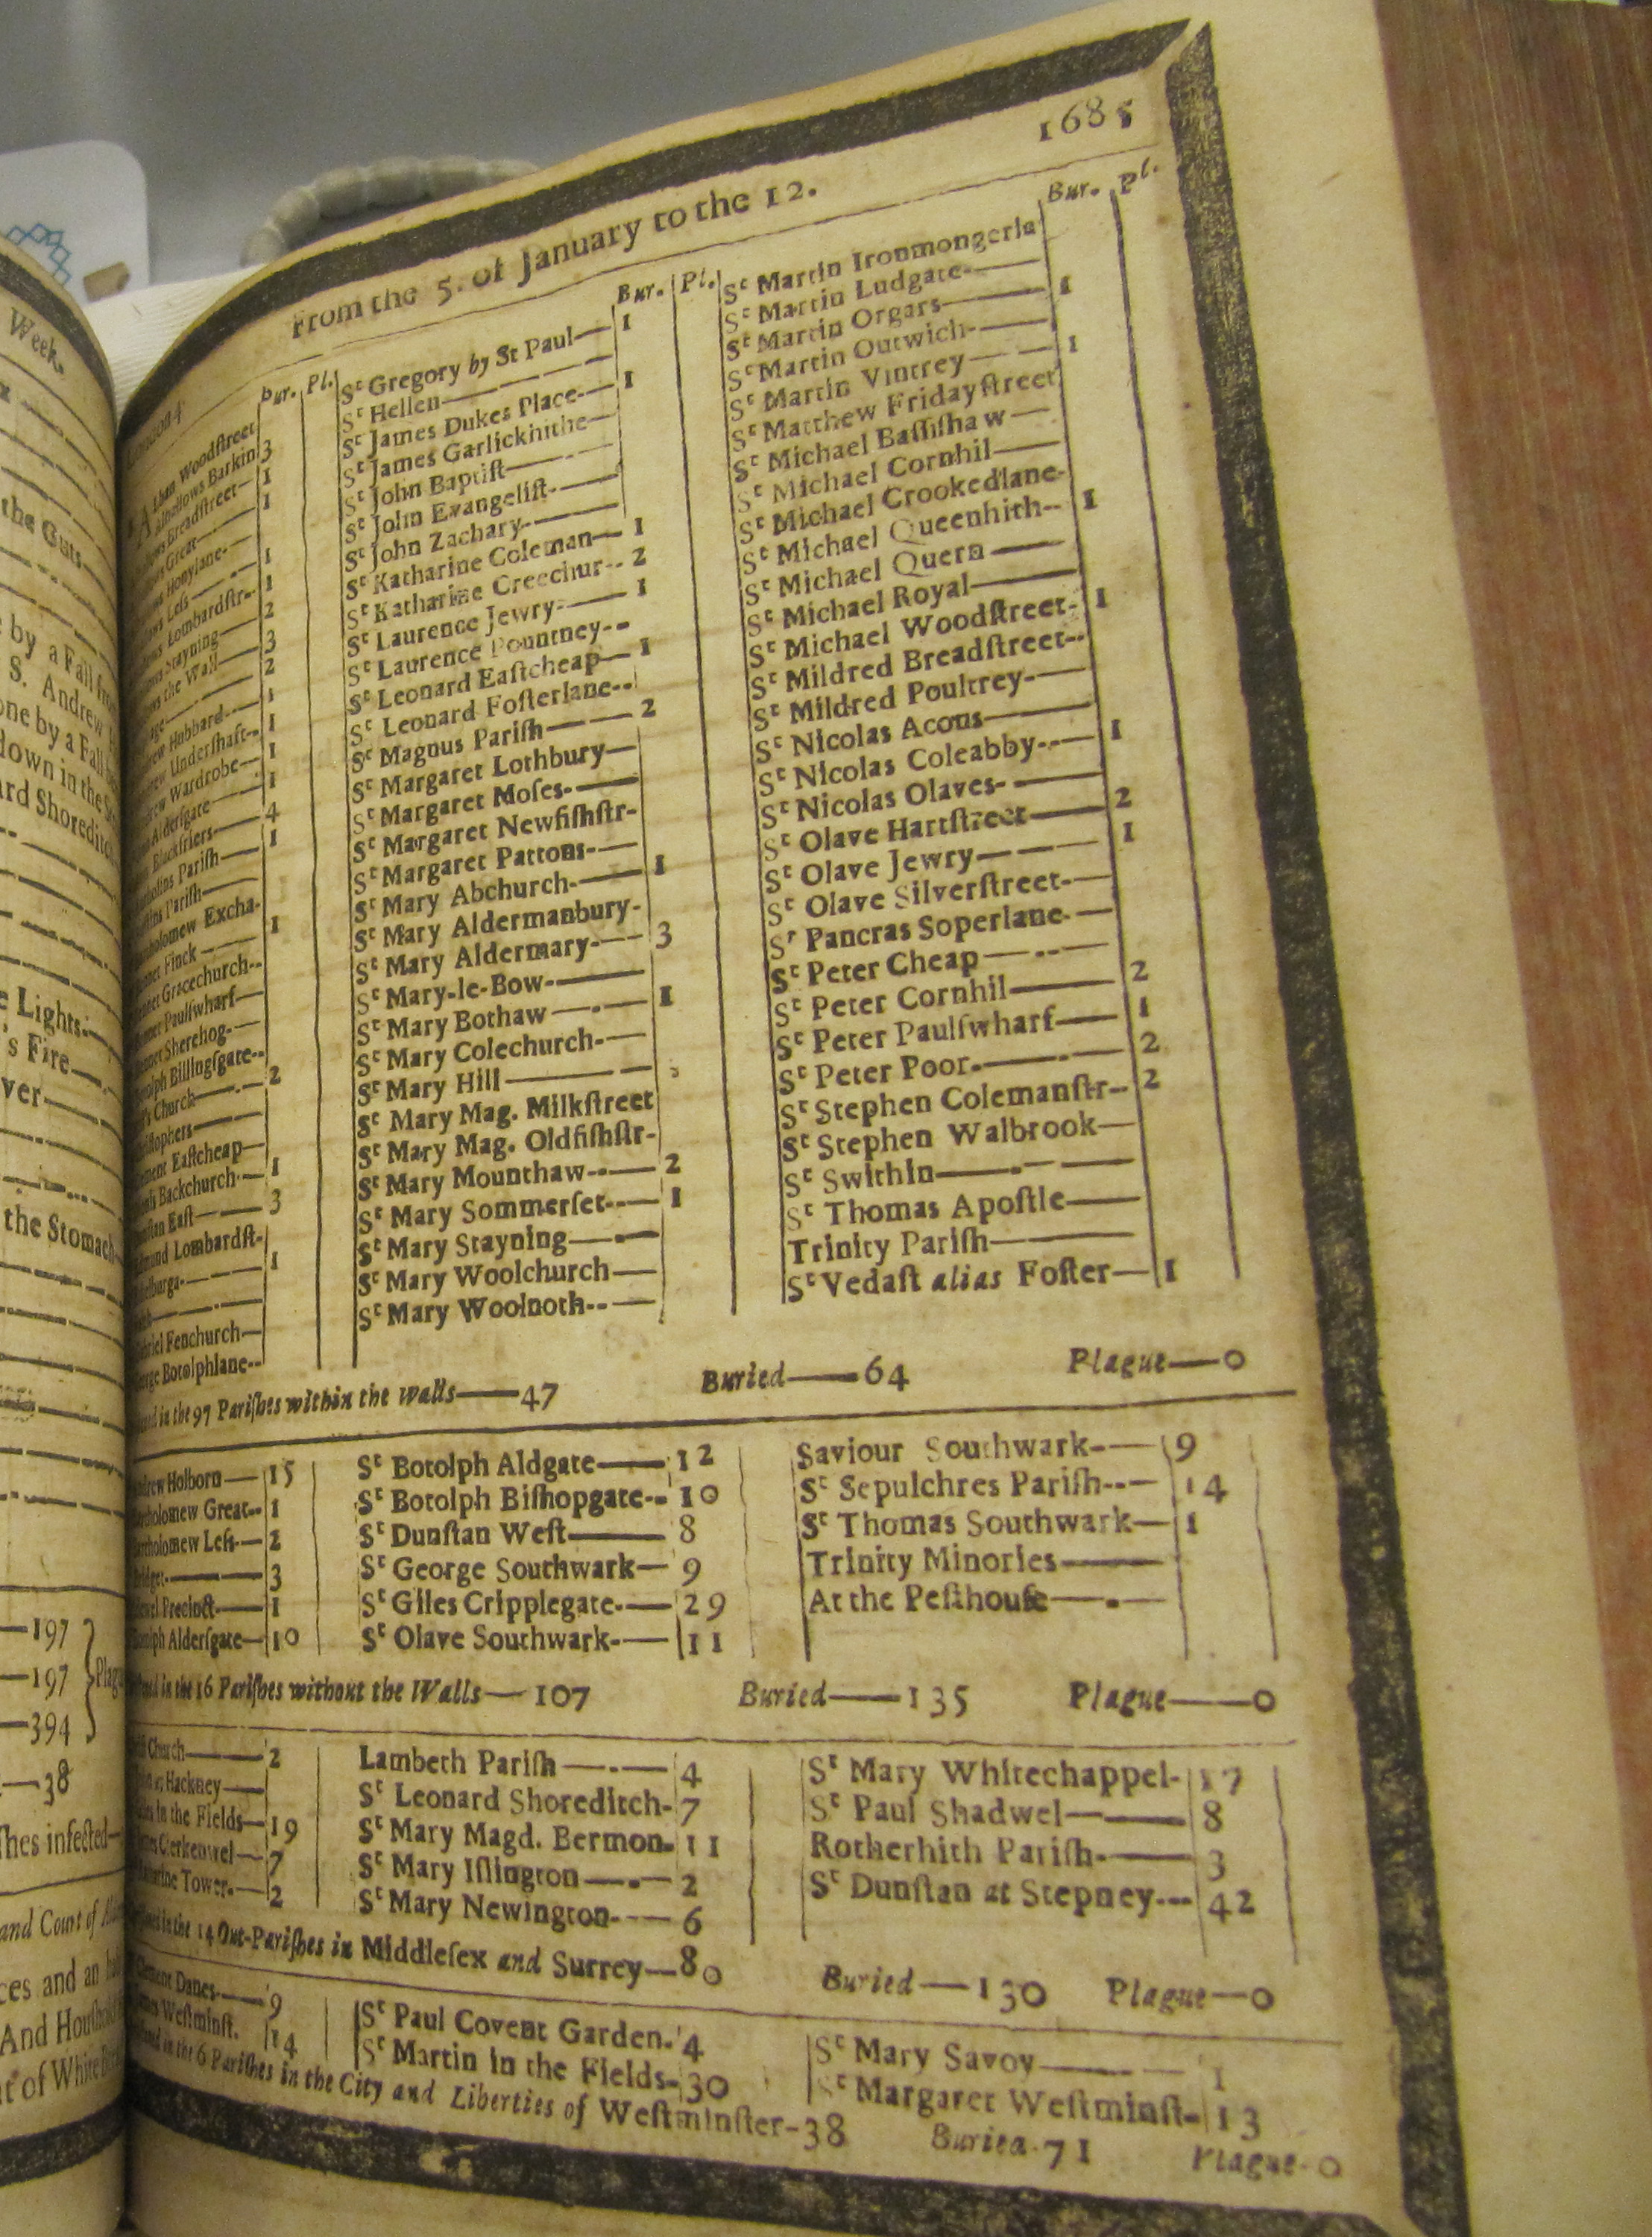 Week.
the Guts
by a Fall
S. Andrew
one by a Fall
down in the
ard Shoreditch
Lights
's Fire
ver
the Stomach
197
197
394
38
shes infected
and Court of
ces and an
And
t of White
1685
From the 5. of January to the 12.
Bur. Pl.
Woodſtreet
Barkin 3
Breadſtreet— 1
Great— 1
Honylane-
Leſs— 1
Lombardſtr-- 1
Stayning— 2
the Wall— 3
— 2
Hubbard— 1
Underſhaft-- 1
Wardrobe— 1
Alderſgate— 1
Blackfriers— 4
Pariſh— 1
Pariſh—
Excha-
Finck— 1
Gracechurch--
Paulſwharf—
Sherehog-—
Billingſgate--
Church— 2
Eaſtcheap—
Backchurch-— 1
Eaſt— 3
Lombardſt-
— 1
Fenchurch—
Botolphlane--
Bur. Pl.
Sᵗ Gregory by St Paul— 1
Sᵗ Hellen—
Sᵗ James Dukes Place-— 1
Sᵗ James Garlickhithe—
Sᵗ John Baptiſt—
Sᵗ John Evangeliſt-—
Sᵗ John Zachary-—
Sᵗ Katharine Coleman— 1
Sᵗ Katharine Creechur-- 2
Sᵗ Laurence Jewry-— 1
Sᵗ Laurence Pountney--
Sᵗ Leonard Eaſtcheap— 1
Sᵗ Leonard Foſterlane--
Sᵗ Magnus Pariſh— 2
Sᵗ Margaret Lothbury—
Sᵗ Margaret Moſes-—
Sᵗ Margaret Newfiſhſtr-
Sᵗ Margaret Pattons-—
Sᵗ Mary Abchurch-— 1
Sᵗ Mary Aldermanbury-
Sᵗ Mary Aldermary-— 3
Sᵗ Mary-le-Bow-—
Sᵗ Mary Bothaw— 1
Sᵗ Mary Colechurch-—
Sᵗ Mary Hill—
Sᵗ Mary Mag. Milkſtreet
Sᵗ Mary Mag. Oldfiſhſtr-
Sᵗ Mary Mounthaw--— 2
Sᵗ Mary Sommerſet--— 1
Sᵗ Mary Stayning—
Sᵗ Mary Woolchurch—
Sᵗ Mary Woolnoth--—
Bur. Pl.
Sᵗ Martin Ironmongerla
Sᵗ Martin Ludgate-—
Sᵗ Martin Orgars— 1
Sᵗ Martin Outwich-—
Sᵗ Martin Vintrey— 1
Sᵗ Matthew Fridayſtreet
Sᵗ Michael Baſſiſhaw—
Sᵗ Michael Cornhil—
Sᵗ Michael Crookedlane-
Sᵗ Michael Queenhith-- 1
Sᵗ Michael Quern—
Sᵗ Michael Royal—
Sᵗ Michael Woodſtreet- 1
Sᵗ Mildred Breadſtreet--
Sᵗ Mildred Poultrey-—
Sᵗ Nicolas Acons—
Sᵗ Nicolas Coleabby--— 1
Sᵗ Nicolas Olaves-—
Sᵗ Olave Hartſtreet— 2
Sᵗ Olave Jewry— 1
Sᵗ Olave Silverſtreet-—
Sᵗ Pancras Soperlane-—
Sᵗ Peter Cheap—
Sᵗ Peter Cornhil— 2
Sᵗ Peter Paulſwharf— 1
Sᵗ Peter Poor-— 2
Sᵗ Stephen Colemanſtr-- 2
Sᵗ Stephen Walbrook—
Sᵗ Swithin—
Sᵗ Thomas Apoſtle—
Trinity Pariſh—
Sᵗ Vedaſt alias Foſter— 1
in the 97 Pariſhes within the walls—47 Buried—64 Plague—0
Holborn— 15
Great-- 1
Leſs— 2
— 3
Precinct— 1
Alderſgate— 10
Sᵗ Botolph Aldgate— 12
Sᵗ Botolph Biſhopgate-- 10
Sᵗ Dunſtan Weſt— 8
Sᵗ George Southwark— 9
Sᵗ Giles Cripplegate-— 29
Sᵗ Olave Southwark-— 11
Saviour Southwark-— 9
Sᵗ Sepulchres Pariſh--— 14
Sᵗ Thomas Southwark— 1
Trinity Minories—
At the Peſthouſe—
in the 16 Pariſhes without the Walls—107 Buried—135 Plague—0
Church— 2
Hackney—
in the Fields— 19
Clerkenwel— 7
Tower-— 2
Lambeth Pariſh— 4
Sᵗ Leonard Shoreditch- 7
Sᵗ Mary Magd. Bermon- 11
Sᵗ Mary Iſlington— 2
Sᵗ Mary Newington-— 6
Sᵗ Mary Whitechappel- 17
Sᵗ Paul Shadwel— 8
Rotherhith Pariſh-— 3
Sᵗ Dunſtan at Stepney--- 42
in the 14 Out-Pariſhes in Middleſex and Surrey—80 Buried—130 Plague—0
Danes— 9
Weſtminſt. 14
Sᵗ Paul Covent Garden- 4
Sᵗ Martin in the Fields- 30
Sᵗ Mary Savoy— 1
Sᵗ Margaret Weſtminſt- 13
in the 6 Pariſhes in the City and Liberties of Weſtminſter-38 Buried-71 Plague-0